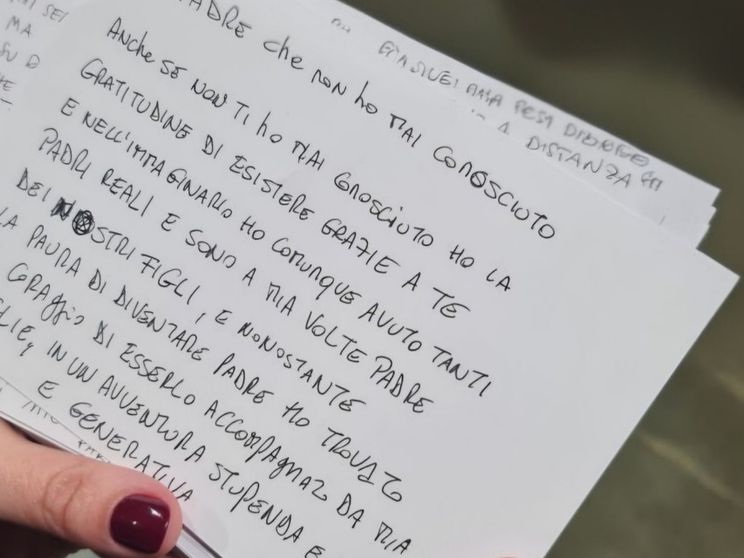 PADRE che non ho MAI CONOSCIUTO
Anche SE NON TI ho MAI CONOSCIUTO HO LA
GRATITUDINE DI ESISTERE GRAZIE A TE
E NELL'IMMAGINARIO HO COMUNQUE AVUTO TANTI
PADRI REALI E SONO A MIA VOLTE PADRE
DEI NOSTRI FIGLI, E NONOSTANTE
LA PAURA DI DIVENTARE PADRE HO TROVATO
GRAFFIO DI ESSERLO ACCOMPAGNATO DA MIA
LIE, IN UN AVVENTURA STUPENDA E
E GENERATIVA
DISTANZA
MA
SU D